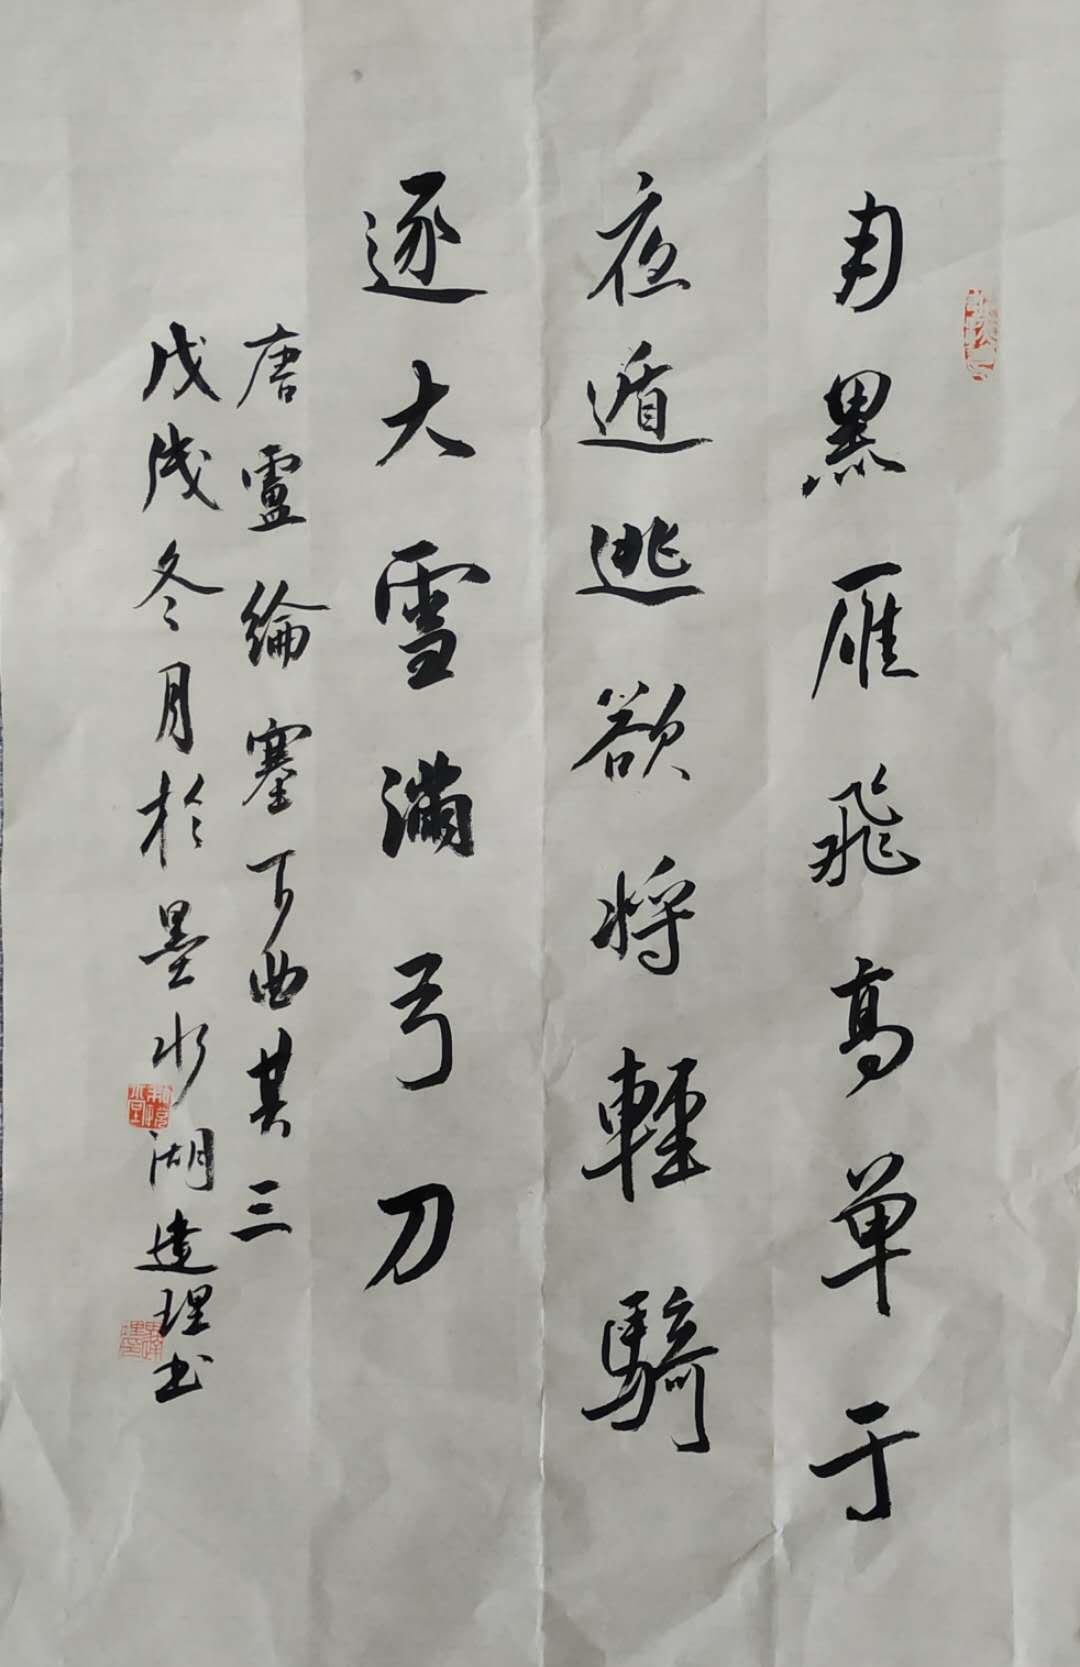 月黑雁飛高单于
夜遁逃欲将輕騎
逐大雪滿弓刀
唐盧綸塞下曲其三
戊戌冬月於墨水湖達理书